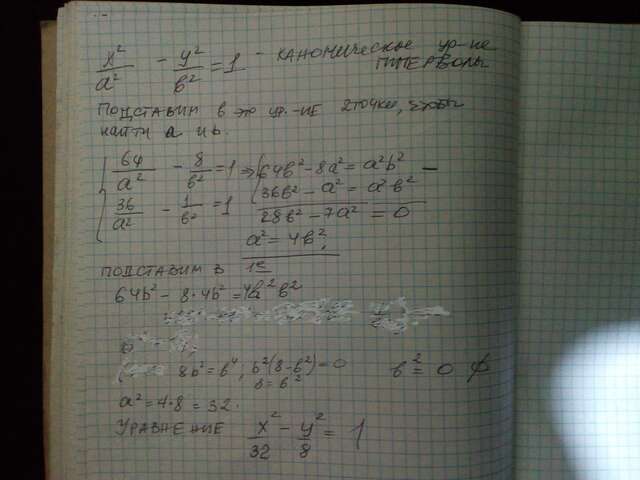 x²/a² - y²/в² = 1 - каноническое ур-ние
гиперболы
Подставим в это ур.-ние 2 точки, чтобы
найти a и b.
{ 64/a² - 8/в² = 1 ⇒ { 64в² - 8a² = a²b² -
36/a² - 1/в² = 1 36в² - a² = a²в²
28в² - 7a² = 0
a² = 4в²,
подставим в 1е
64b² - 8·4b² = 4b²в²
8b² = в⁴; b²(8-в²) = 0 в² = 0 ∅
8 = в²
a² = 4·8 = 32.
Уравнение x²/32 - y²/8 = 1